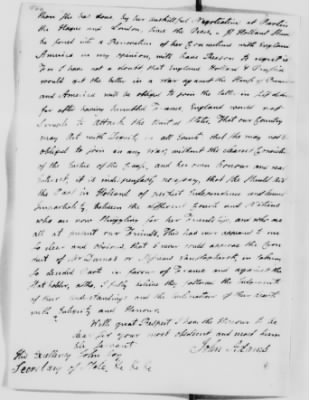 than she has done by her unskilful Negotiations at Berlin
the Hague and London, since the Peace. If Holland shou
be forced into a Renovation of her Connections with England
America in my opinion, will have Reason to regret it
for I have not a doubt that England Holland & Prussia
would get the better in a war against the House of Bourbon
and America will be obliged to join the latter in self defence
for after having humbled France England would not
scruple to attack the United States, That our Country
may Act with Dignity in all Events, that she may not be
obliged to join in any War, without the clearest Conviction
of the Justice of the Cause, and her own Honour and real
Interest, it is indispensably necessary, that she should act
the Part in Holland of perfect Independence and honest
Impartiality between the different Courts and Nations
who are now struggling for her Friendship, and who are
all at present our Friends. This has ever appeared to me
so clear and obvious that I never could approve the Con
duct of Mr Dumas or in taking
so decided Part in favour of France and against the
Stat holder, altho, I fully believe they followed the Judgments
of their understandings and the inclination of their hearts
with Integrity and Honour.
With great Respect I have the Honour to be
dear Sir your most obedient and most hum
ble Servant
John Adams
His Excellency John Jay
Secretary of State &c &c &c